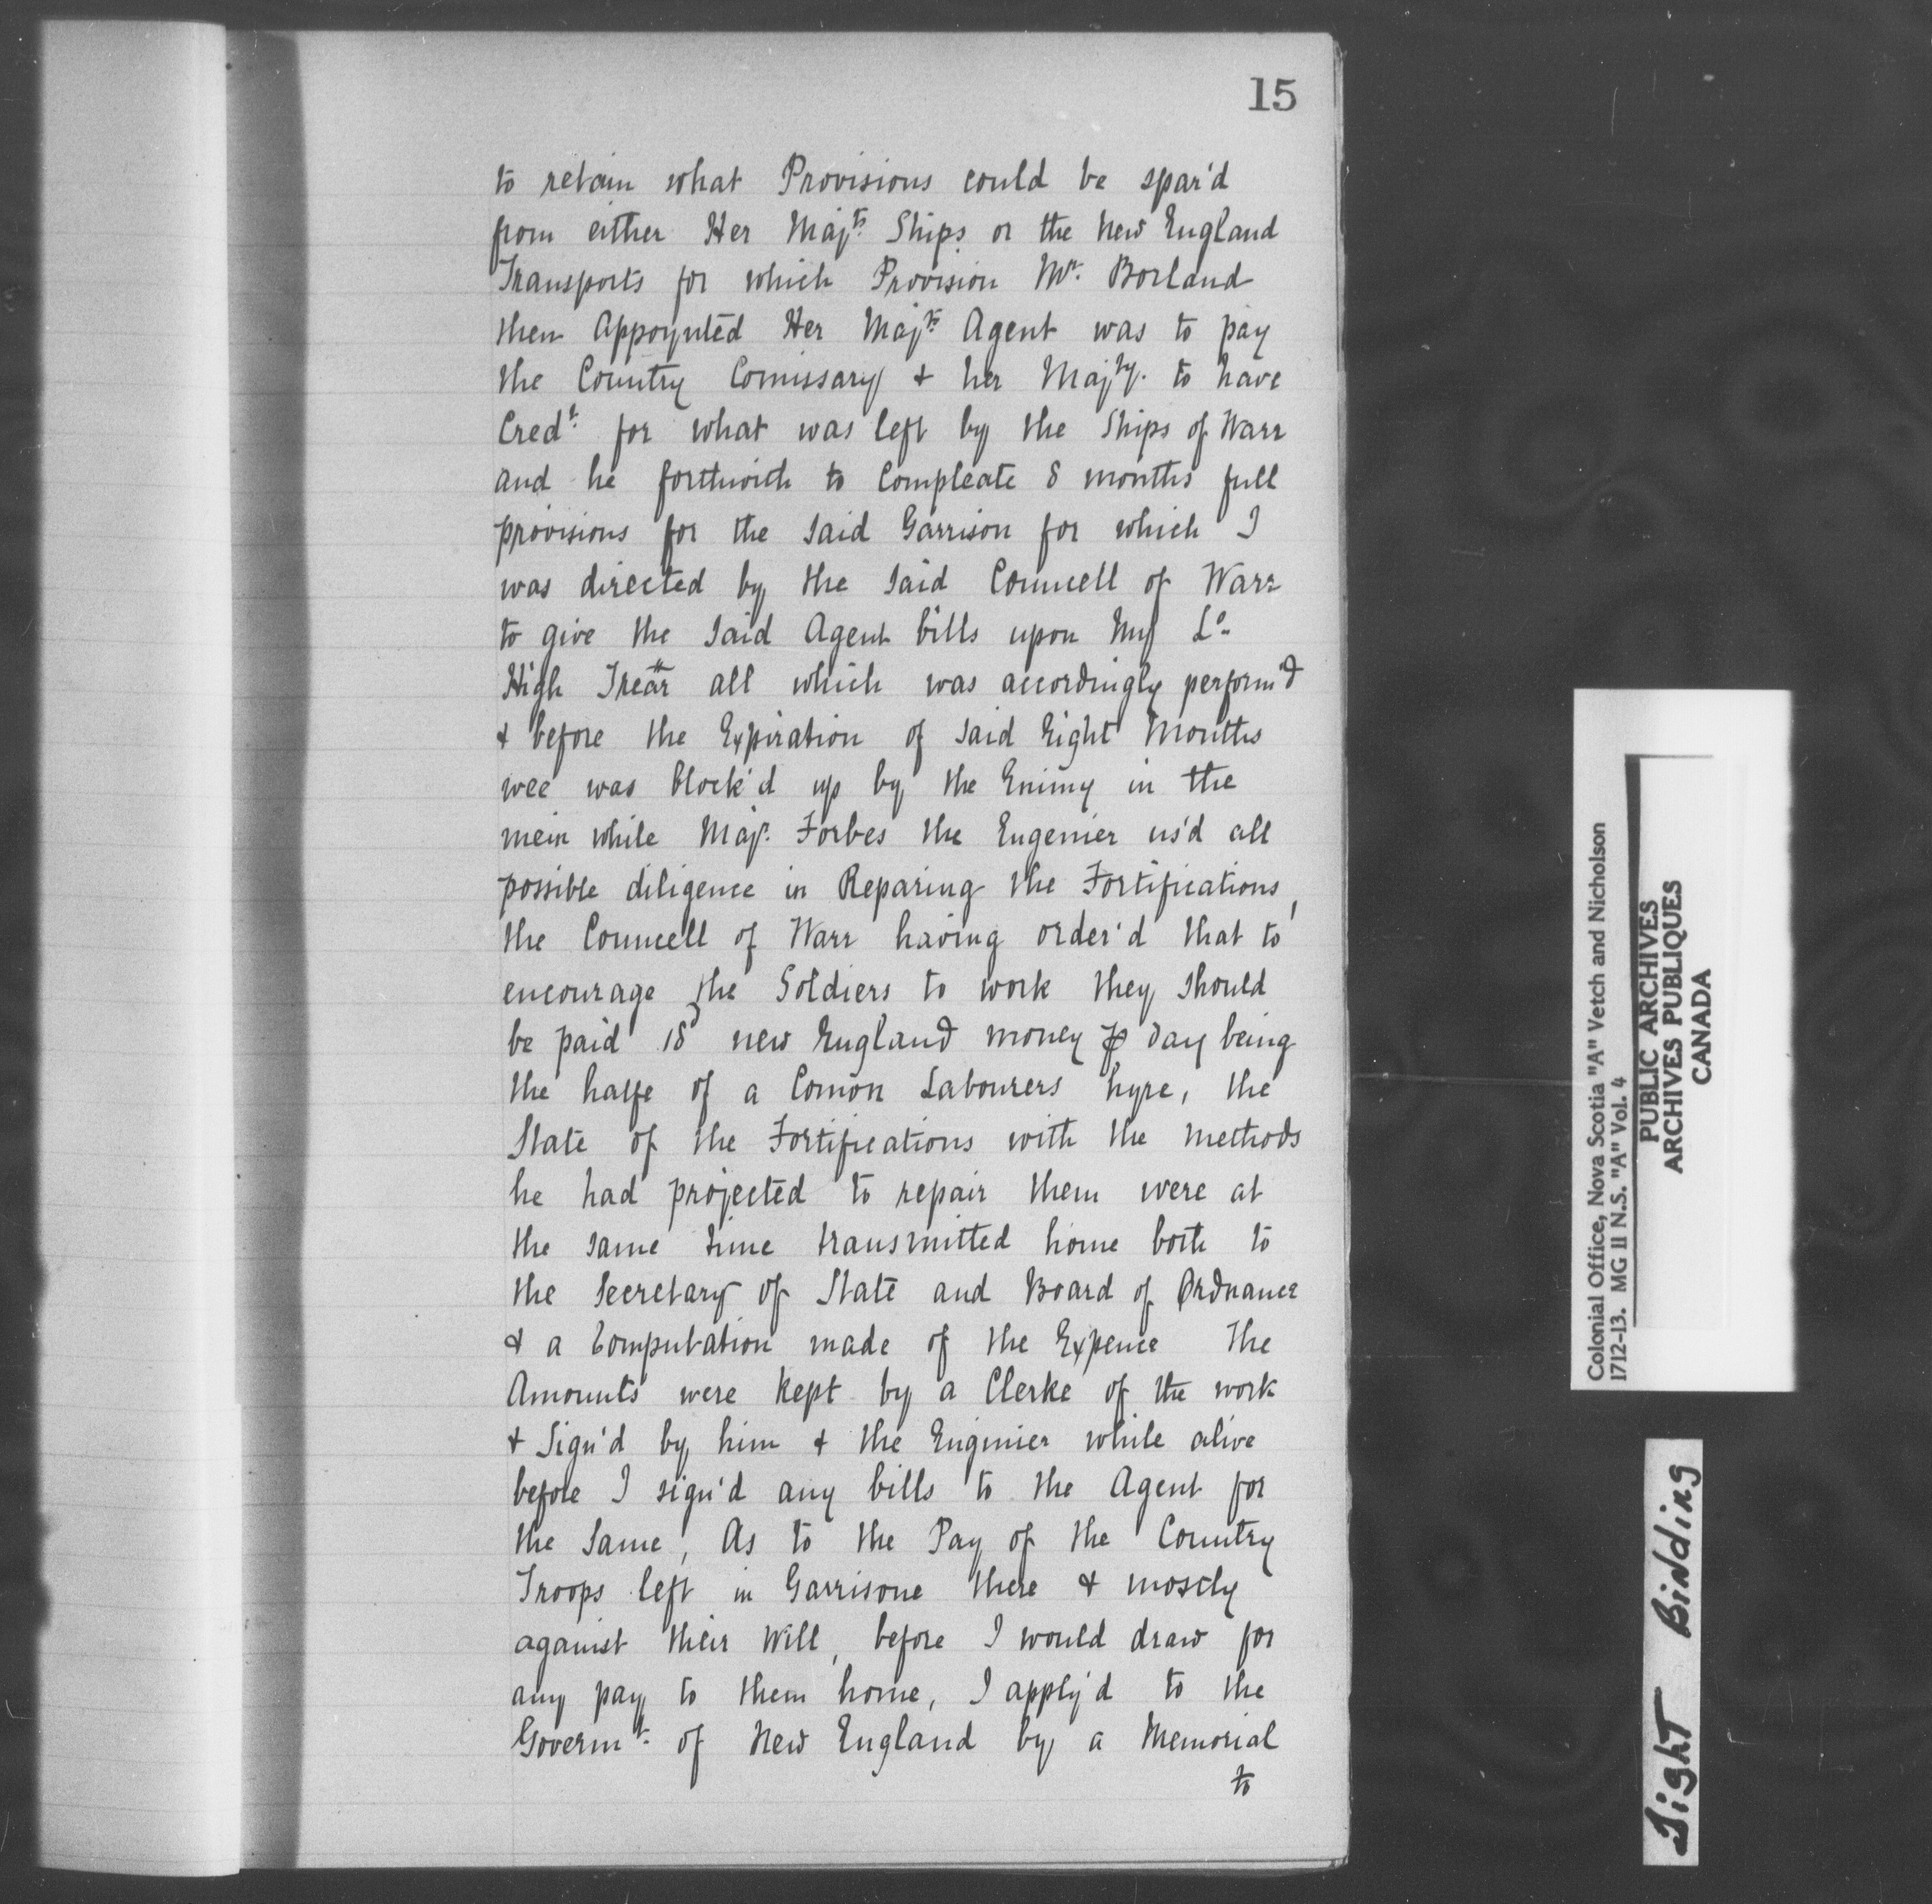 15
to retain what Provisions could be spar'd
from either Her Maj.ts Ships or the New England
Transports for which Provision Mr. Borland
then Appoynted Her Maj.ts Agent was to pay
the Country Comissary & her Maj.ty to have
Cred.t for what was left by the Ships of Warr
and he forthwith to Compleate 8 months full
provisions for the said Garrison for which I
was directed by the said Councell of Warr
to give the said Agent bills upon My Lo.
High Trear all which was accordingly perform'd
& before the Expiration of said Eight Months
wee was block'd up by the Enimy in the
mein while Maj.r Forbes the Engenier us'd all
possible diligence in Reparing the Fortifications,
the Councell of Warr having order'd that to
encourage the Soldiers to work they should
be paid 18d new England money ⅌ day being
the halfe of a Comōn Labourers hyre, the
State of the Fortifications with the methods
he had projected to repair them were at
the same time transmitted home both to
the Secretary of State and Board of Ordnance
& a Computation made of the Expence The
Amounts were kept by a Clerke of the work
& Sign'd by him & the Enginier while alive
before I sign'd any bills to the Agent for
the same, As to the Pay of the Country
Troops left in Garrisone there & mostly
against their Will, before I would draw for
any pay to them home, I apply'd to the
Governm.t of New England by a Memorial
to
Colonial Office, Nova Scotia "A" Vetch and Nicholson
1712-13. MG 11 N.S. "A" Vol. 4
PUBLIC ARCHIVES
ARCHIVES PUBLIQUES
CANADA
Tight Binding